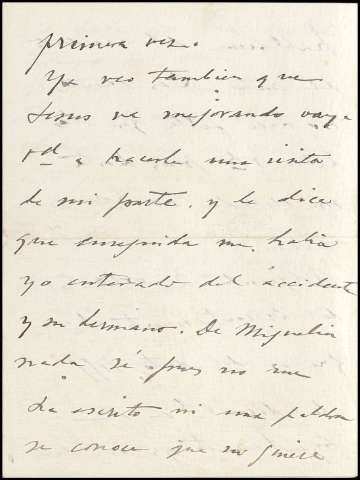 primera vez.
Ya veo tambien que
Jesus va mejorando vaya
Vd a hacerle una visita
de mi parte. y le dice
que enseguida me habia
yo enterado del accidente
y su hermano. De Miguelin
nada sé pues no me
ha escrito ni una palabra
se conoce que no quiere